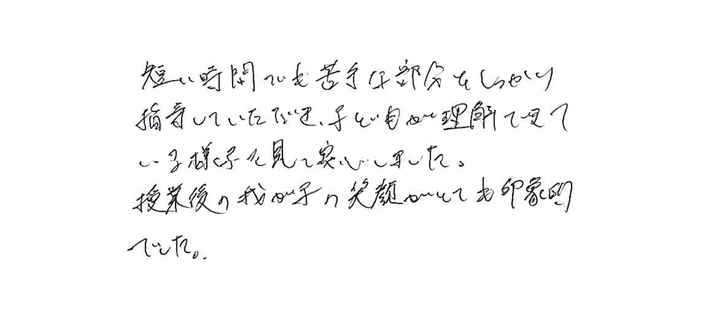 短い時間でも苦手な部分をしっかり
指導していただき、子ども自身が理解できて
いる様子を見て安心しました。
授業後の我が子の笑顔がとても印象的
でした。